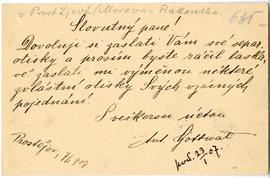 v Prostějově (Morava - Rakousko
635
Slovutný pane!
Dovoluji si zaslati Vám své separ.
otisky a prosím byste ráčil laska-
vě zaslati mi výměnou některé
zvláštní otisky Svých vzácných
pojednání.
S veškerou úctou
Ant. Gottwald
Prostějov,
1907
23/I 07.